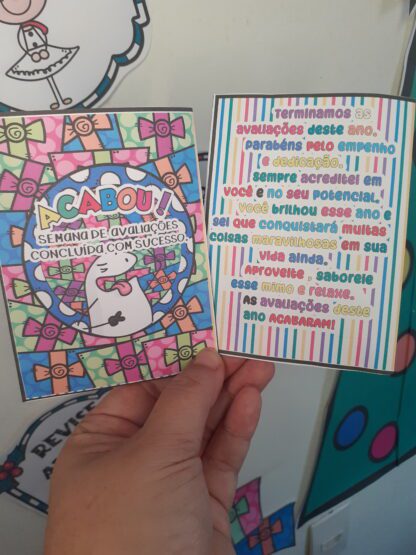 ACABOU!
SEMANA DE AVALIAÇÕES
CONCLUÍDA COM SUCESSO.
Terminamos as
avaliações deste ano.
Parabéns pelo empenho
e dedicação.
Sempre acreditei em
você e no seu potencial.
Você brilhou esse ano e
sei que conquistará muitas
coisas maravilhosas em sua
vida ainda.
Aproveite, saboreie
esse mimo e relaxe.
As avaliações deste
ano ACABARAM!
REVISE